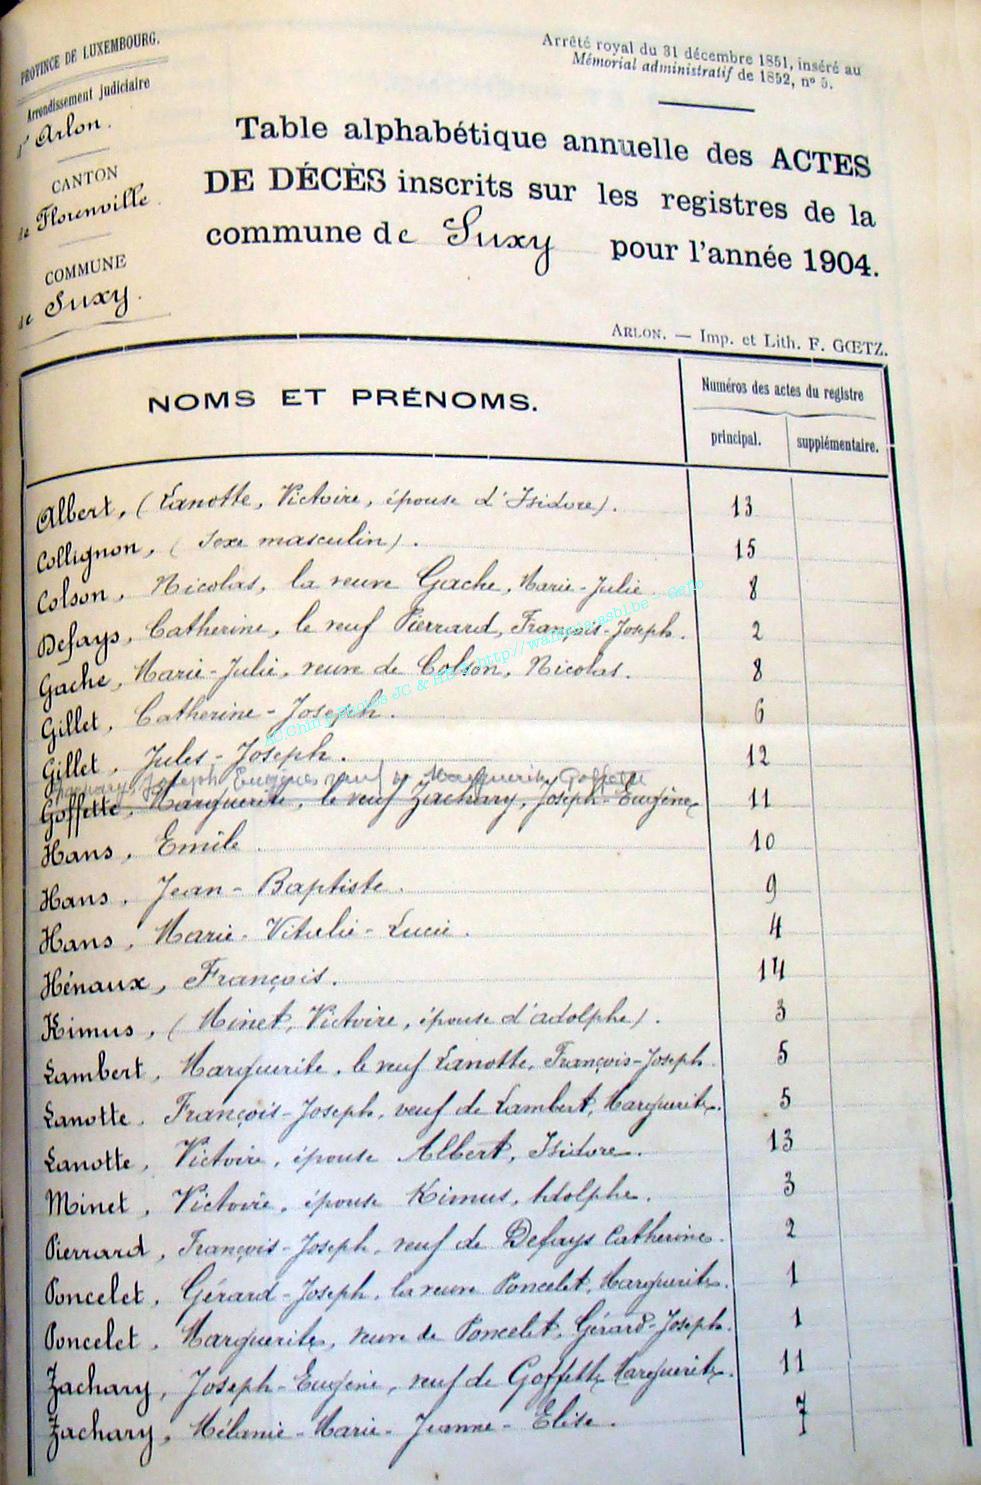 PROVINCE DE LUXEMBOURG.
Arrondissement judiciaire
d'Arlon.
CANTON
de Florenville.
COMMUNE
de Suxy.
Arrêté royal du 31 décembre 1851, inséré au
Mémorial administratif de 1852, n° 5.
Table alphabétique annuelle des ACTES
DE DÉCÈS inscrits sur les registres de la
commune de Suxy pour l'année 1904.
ARLON. — Imp. et Lith. F. GŒTZ.
NOMS ET PRÉNOMS.
Numéros des actes du registre
principal. supplémentaire.
Albert, (Lanotte, Victoire, épouse d'Isidore). 13
Collignon, (Sexe masculin). 15
Colson, Nicolas, la veuve Gache, Marie-Julie. 8
Defays, Catherine, le veuf Pierrard, François-Joseph. 2
Gache, Marie-Julie, veuve de Colson, Nicolas. 8
Gillet, Catherine-Joseph. 6
Gillet, Jules-Joseph. 12
Zachary, Joseph Eugène, veuf de Marguerite Goffette
Goffette, Marguerite, le veuf Zachary, Joseph-Eugène 11
Hans, Emile. 10
Hans, Jean-Baptiste. 9
Hans, Marie-Vitulie-Lucie. 4
Hénaux, François. 14
Kimus, (Minet, Victoire, épouse d'adolphe). 3
Lambert, Marguerite, le veuf Lanotte, François-Joseph. 5
Lanotte, François-Joseph, veuf de Lambert, Marguerite. 5
Lanotte, Victoire, épouse Albert, Isidore. 13
Minet, Victoire, épouse Kimus, Adolphe. 3
Pierrard, François-Joseph, veuf de Defays Catherine. 2
Poncelet, Gérard-Joseph, la veuve Poncelet, Marguerite. 1
Poncelet, Marguerite, veuve de Poncelet, Gérard-Joseph. 1
Zachary, Joseph-Eugène, veuf de Goffette Marguerite. 11
Zachary, Mélanie-Marie-Jeanne-Elise. 7